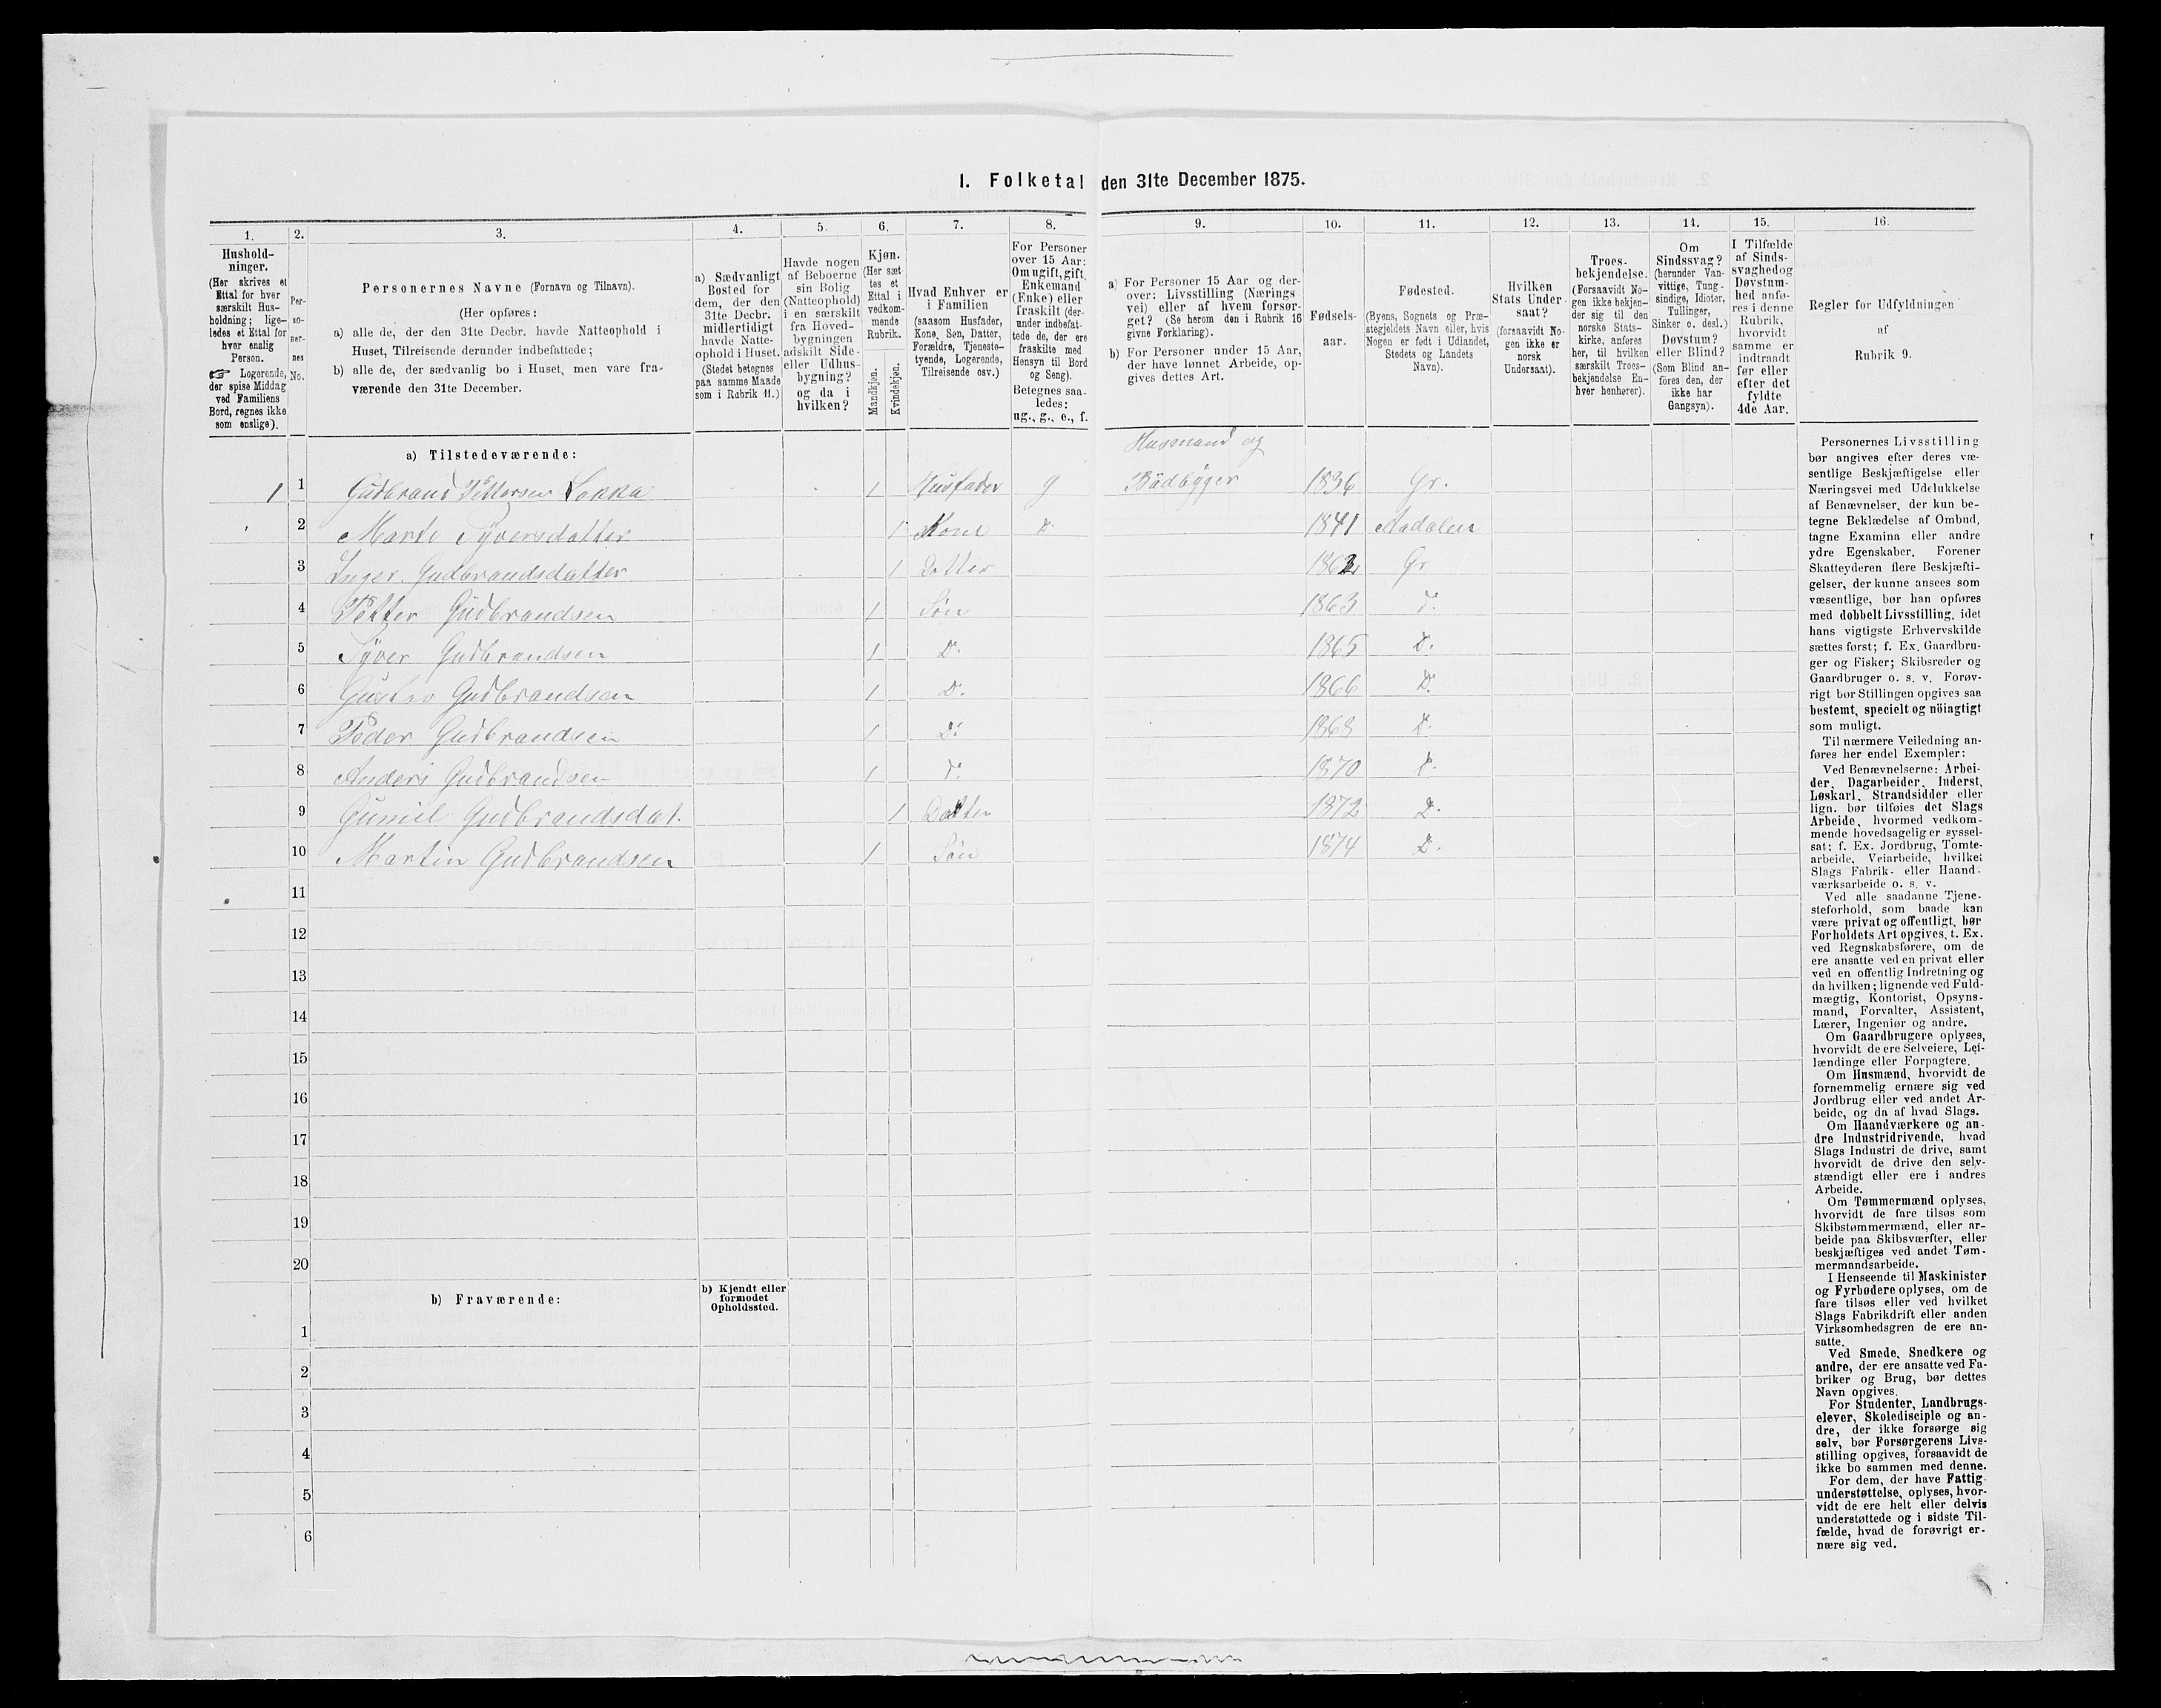 I. Folketal den 31te December 1875.
1. 2. 3. 4. 5. 6. 7. 8. 9. 10. 11. 12. 13. 14. 15. 16.
Hushold-
ninger.
(Her skrives et
Ettal for hver
særskilt Hus-
holdning; lige-
ledes et Ettal for
hver enslig
Person.
☞ Logerende,
der spise Middag
ved Familiens
Bord, regnes ikke
som enslige).
Per-
so-
ner-
nes
No.
Personernes Navne (Fornavn og Tilnavn).
(Her opføres:
a) alle de, der den 31te Decbr. havde Natteophold i
Huset, Tilreisende derunder indbefattede;
b) alle de, der sædvanlig bo i Huset, men vare fra-
værende den 31te December.
a) Sædvanligt
Bosted for
dem, der den
31te Decbr.
midlertidigt
havde Natte-
ophold i Huset.
(Stedet betegnes
paa samme Maade
som i Rubrik 11.)
Havde nogen
af Beboerne
sin Bolig
(Natteophold)
i en særskilt
fra Hoved-
bygningen
adskilt Side-
eller Udhus-
bygning?
og da i
hvilken?
Kjøn.
(Her sæt-
tes et
Ettal i
vedkom-
mende
Rubrik.
Mandkjøn.
Kvindekjøn.
Hvad Enhver er
i Familien
(saasom Husfader,
Kone, Søn, Datter,
Forældre, Tjeneste-
tyende, Logerende,
Tilreisende osv.)
For Personer
over 15 Aar:
Om ugift, gift,
Enkemand
(Enke) eller
fraskilt (der-
under indbefat-
tede de, der ere
fraskilte med
Hensyn til Bord
og Seng).
Betegnes saa-
ledes:
ug., g., e., f.
a) For Personer 15 Aar og der-
over: Livsstilling (Nærings-
vei) eller af hvem forsør-
get? (Se herom den i Rubrik 16
givne Forklaring).
b) For Personer under 15 Aar,
der have lønnet Arbeide, op-
gives dettes Art.
Fødsels-
aar.
Fødested.
(Byens, Sognets og Præ-
stegjeldets Navn eller, hvis
Nogen er født i Udlandet,
Stedets og Landets
Navn).
Hvilken
Stats Under-
saat?
(forsaavidt No-
gen ikke er
norsk
Undersaat).
Troes-
bekjendelse.
(Forsaavidt No-
gen ikke bekjen-
der sig til den
norske Stats-
kirke, anføres
her, til hvilken
særskilt Troes-
bekjendelse En-
hver henhører).
Om
Sindssvag?
(herunder Van-
vittige, Tung-
sindige, Idioter,
Tullinger,
Sinker o. desl.)
Døvstum?
eller Blind?
(Som Blind an-
føres den, der
ikke har
Gangsyn).
I Tilfælde
af Sinds-
svaghed og
Døvstum-
hed anfø-
res i denne
Rubrik,
hvorvidt
samme er
indtraadt
før eller
efter det
fyldte
4de Aar.
Regler for Udfyldningen
af
Rubrik 9.
a) Tilstedeværende:
Husmand og
1 1 Gudbrand Pettersen Sokka 1 Husfader g Bådbyger 1836 Gr.
2 Marte Syversdatter 1 Kone D. 1841 Aadalen
3 Inger Gudbrandsdatter 1 Datter 1862 Gr
4 Petter Gudbrandsen 1 Søn 1863 D.
5 Syver Gudbrandsen 1 D. 1865 D.
6 Gustav Gudbrandsen 1 D. 1866 D.
7 Peder Gudbrandsen 1 D. 1868 D.
8 Anders Gudbrandsen 1 D. 1870 D.
9 Guniel Gudbrandsdat. 1 Datter 1872 D.
10 Martin Gudbrandsen 1 Søn 1874 D.
11
12
13
14
15
16
17
18
19
20
b) Fraværende:
b) Kjendt eller
formodet
Opholdssted.
1
2
3
4
5
6
Personernes Livsstilling
bør angives efter deres væ-
sentlige Beskjæftigelse eller
Næringsvei med Udelukkelse
af Benævnelser, der kun be-
tegne Beklædelse af Ombud,
tagne Examina eller andre
ydre Egenskaber. Forener
Skatteyderen flere Beskjæfti-
gelser, der kunne ansees som
væsentlige, bør han opføres
med dobbelt Livsstilling, idet
hans vigtigste Erhvervskilde
sættes først; f. Ex. Gaardbru-
ger og Fisker; Skibsreder og
Gaardbruger o. s. v. Forøv-
rigt bør Stillingen opgives saa
bestemt, specielt og nöiagtigt
som muligt.
Til nærmere Veiledning an-
føres her endel Exempler:
Ved Benævnelserne: Arbei-
der, Dagarbeider, Inderst,
Løskarl, Strandsidder eller
lign. bør tilføies det Slags
Arbeide, hvormed vedkom-
mende hovedsagelig er syssel-
sat; f. Ex. Jordbrug, Tomte-
arbeide, Veiarbeide, hvilket
Slags Fabrik- eller Haand-
værksarbeide o. s. v.
Ved alle saadanne Tjene-
steforhold, som baade kan
være privat og offentligt, bør
Forholdets Art opgives, t. Ex.
ved Regnskabsførere, om de
ere ansatte ved en privat eller
ved en offentlig Indretning og
da hvilken; lignende ved Fuld-
mægtig, Kontorist, Opsyns-
mand, Forvalter, Assistent,
Lærer, Ingeniør og andre.
Om Gaardbrugere oplyses,
hvorvidt de ere Selveiere, Lei-
lændinge eller Forpagtere.
Om Husmænd, hvorvidt de
fornemmelig ernære sig ved
Jordbrug eller ved andet Ar-
beide, og da af hvad Slags.
Om Haandværkere og an-
dre Industridrivende, hvad
Slags Industri de drive, samt
hvorvidt de drive den selv-
stændigt eller ere i andres
Arbeide.
Om Tømmermænd oplyses,
hvorvidt de fare tilsøs som
Skibstømmermænd, eller ar-
beide paa Skibsværfter, eller
beskjæftiges ved andet Tøm-
mermandsarbeide.
I Henseende til Maskinister
og Fyrbødere oplyses, om de
fare tilsøs eller ved hvilket
Slags Fabrikdrift eller anden
Virksomhedsgren de ere an-
satte.
Ved Smede, Snedkere og
andre, der ere ansatte ved Fa-
briker og Brug, bør dettes
Navn opgives.
For Studenter, Landbrugs-
elever, Skoledisciple og an-
dre, der ikke forsørge sig
selv, bør Forsørgerens Livs-
stilling opgives, forsaavidt de
ikke bo sammen med denne.
For dem, der have Fattig-
understøttelse, oplyses, hvor-
vidt de ere helt eller delvis
understøttede og i sidste Til-
fælde, hvad de forøvrigt er-
nære sig ved.